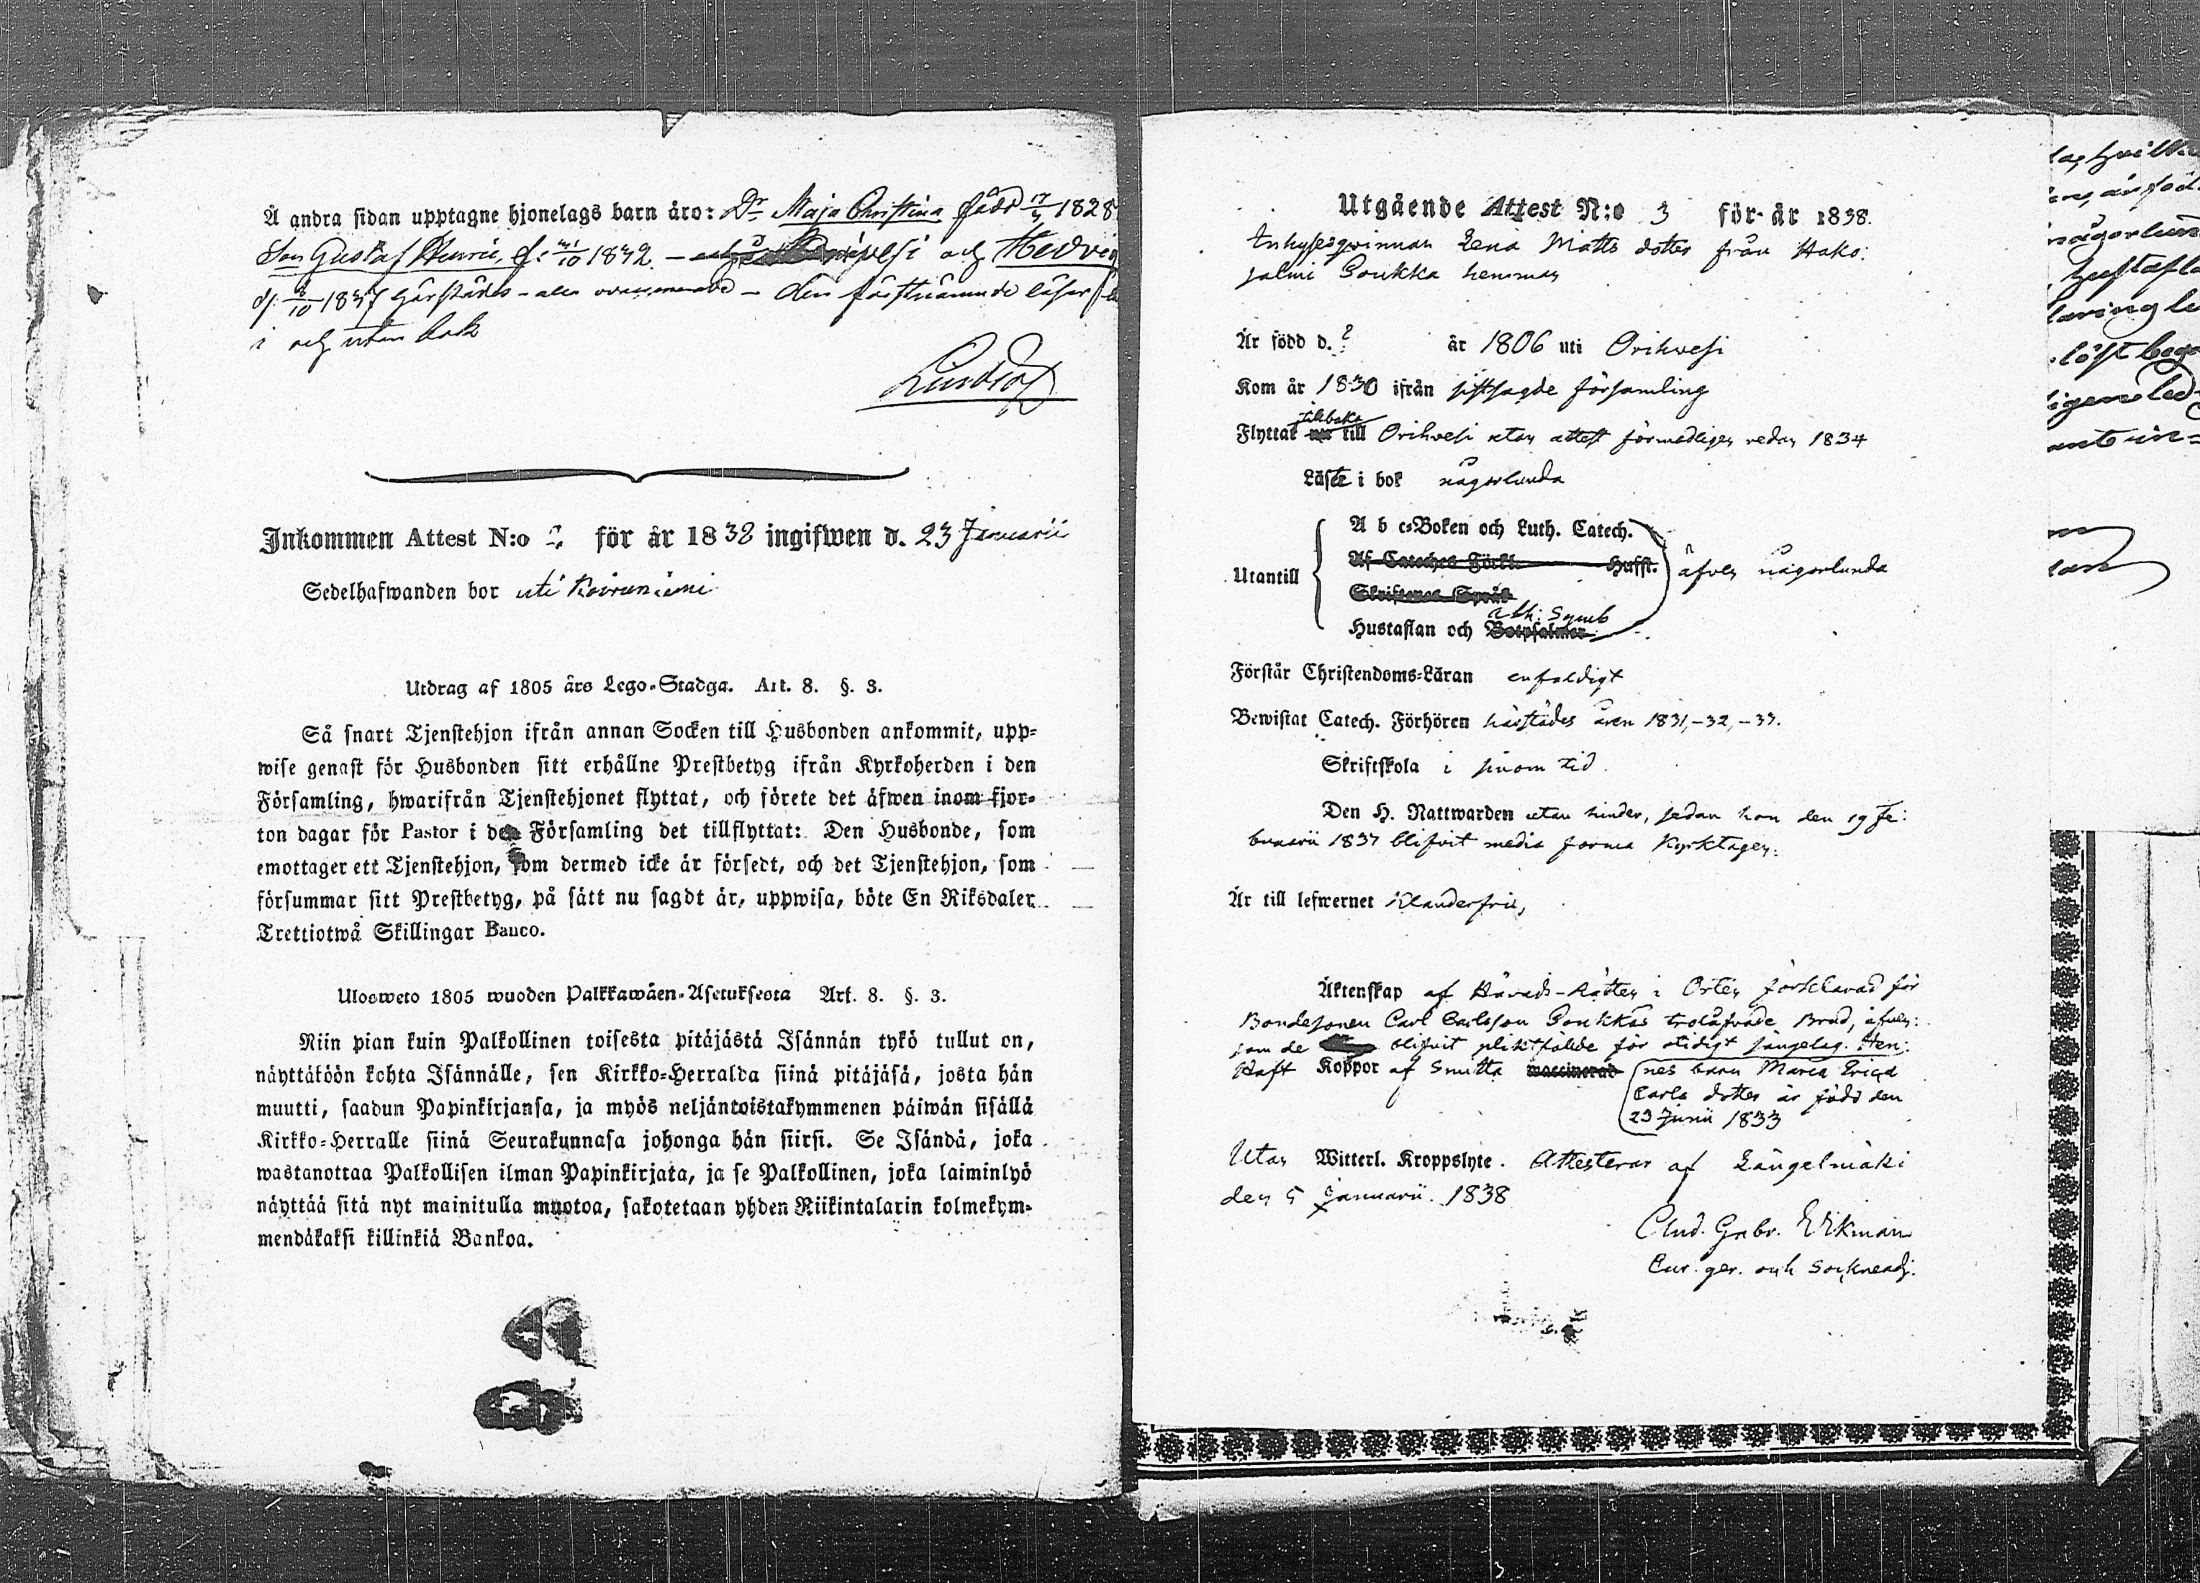 Å andra sidan upptagne hjonelags barn äro: Dr Maja Christina född 17/4 1828
Son Gustaf Henric, f: 1832 och Hedvig
härstädes den förstnämnde läser
i och utan bok
Inkommen Attest N:o för år 1838 ingifwen d. 23 Januarii
Sedelhafwanden bor uti Koivuniemi
Utdrag af 1805 års Lego-Stadga. Art. 8. §. 3.
Så snart Tjenstehjon ifrån annan Socken till Husbonden ankommit, upp-
wise genast för Husbonden sitt erhållne Prestbetyg ifrån Kyrkoherden i den
Församling, hwarifrån Tjenstehjonet flyttat, och förete det äfwen inom fjor-
ton dagar för Pastor i den Församling det tillflyttat: Den Husbonde, som
emottager ett Tjenstehjon, som dermed icke är försedt, och det Tjenstehjon, som
försummar sitt Prestbetyg, på sätt nu sagdt är, uppwisa, böte En Riksdaler
Trettiotwå Skillingar Banco.
Ulosweto 1805 wuoden Palkkawäen-Asetuksesta Art. 8. §. 3.
Niin pian kuin Palkollinen toisesta pitäjästä Isännän tykö tullut on,
näyttäköön kohta Isännälle, sen Kirkko-Herralda siinä pitäjäsä, josta hän
muutti, saadun Papinkirjansa, ja myös neljäntoistakymmenen päiwän sisällä
Kirkko-Herralle siinä Seurakunnasa johonga hän siirsi. Se Isändä, joka
wastanottaa Palkollisen ilman Papinkirjata, ja se Palkollinen, joka laiminlyö
näyttää sitä nyt mainitulla muotoa, sakotetaan yhden Riikintalarin kolmekym-
mendäkaksi killinkiä Bankoa.
Utgående Attest N:o 3 för år 1838.
Inhysesqwinnan Lena Matts dotter från Hako:
salmi Poukka hemman
Är född d. ? år 1806 uti Orihvesi
Kom år 1830 ifrån sistsagde församling
Flyttat tillbaka till Orihvesi utan attest förmodligen redan 1834
Läste i bok någorlunda
A b c-Boken och Luth. Catech.
Af Cateches Förkl. Hufft.
Utantill äfven någorlunda
Skriftenes Språk
Hustaflan och Botpsalmer ath: Symb
Förstår Christendoms-Läran enfaldigt
Bewistat Catech. Förhören härstädes åren 1831,-32,-33.
Skriftskola i sinom tid.
Den H. Nattwarden utan hinder, sedan hon den 19 Fe:
bruarii 1837 blifvit media forma Kyrktagen.
Är till lefwernet klanderfri,
Äktenskap af Härads-Rätten i Orten förklarad för
Bondesonen Carl Carlsson Poukkas trolofvade Brud, äfven:
som de blifvit pliktfälde för otidigt sängelag. Hen:
Haft Koppor af Smitta waccinerad nes barn Maria
Carls dotter är född den
23 Junii 1833
Utan Witterl. Kroppslyte. Attesterar af Längelmäki
den 5 Januarii. 1838
Gabr. Wikman
Cur. ger. och Sockneadj.